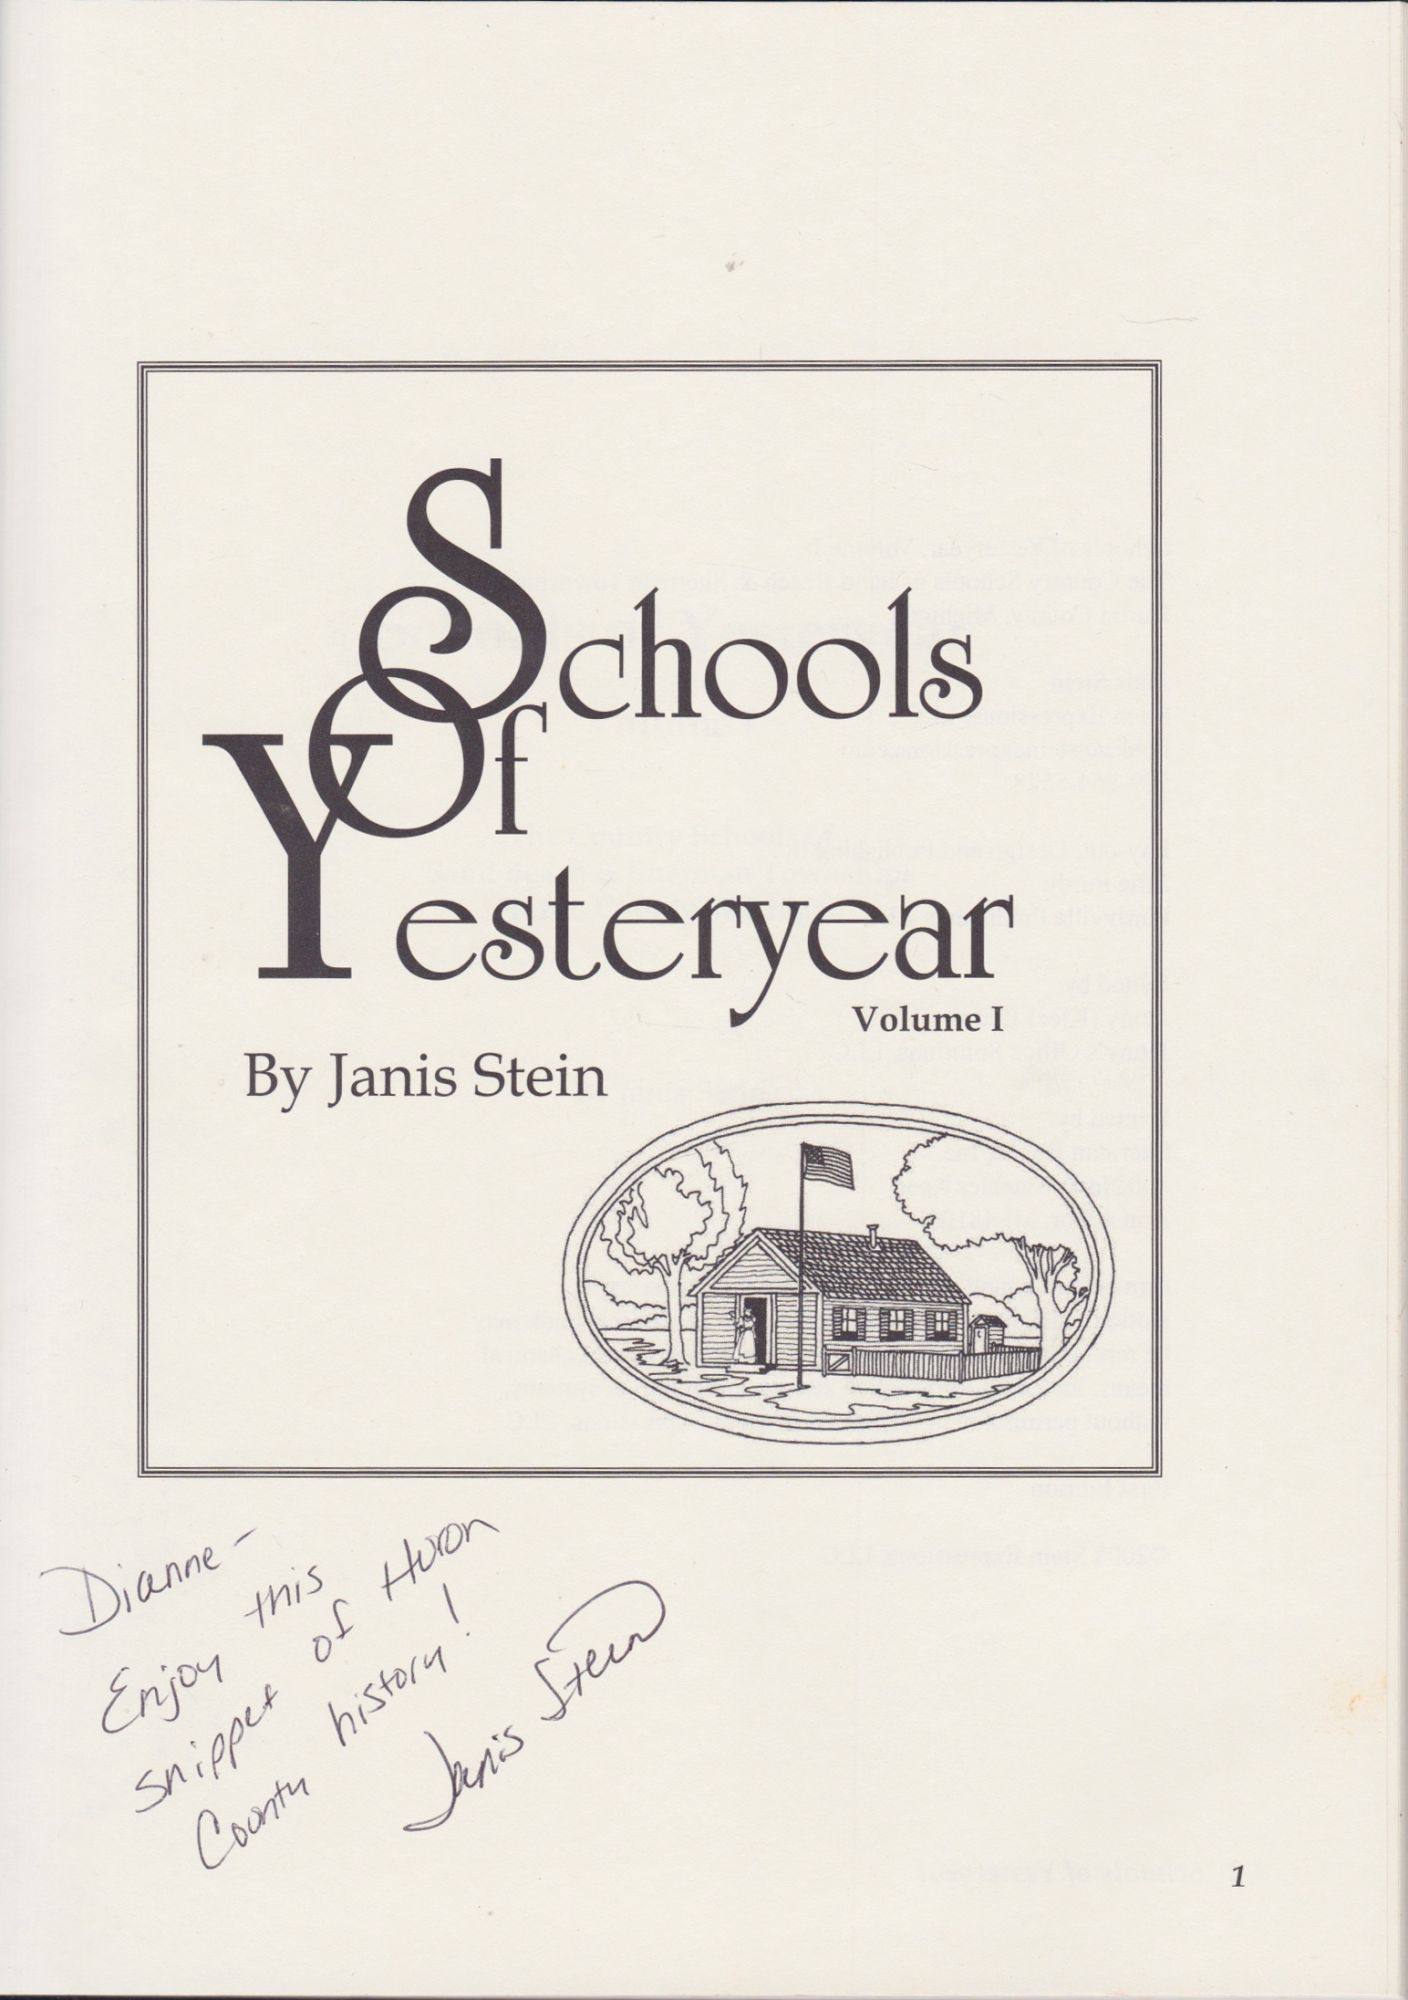 Schools
Of
Yesteryear
Volume I
By Janis Stein
Dianne -
Enjoy this
snippet of Huron
County history!
Janis Stein
1